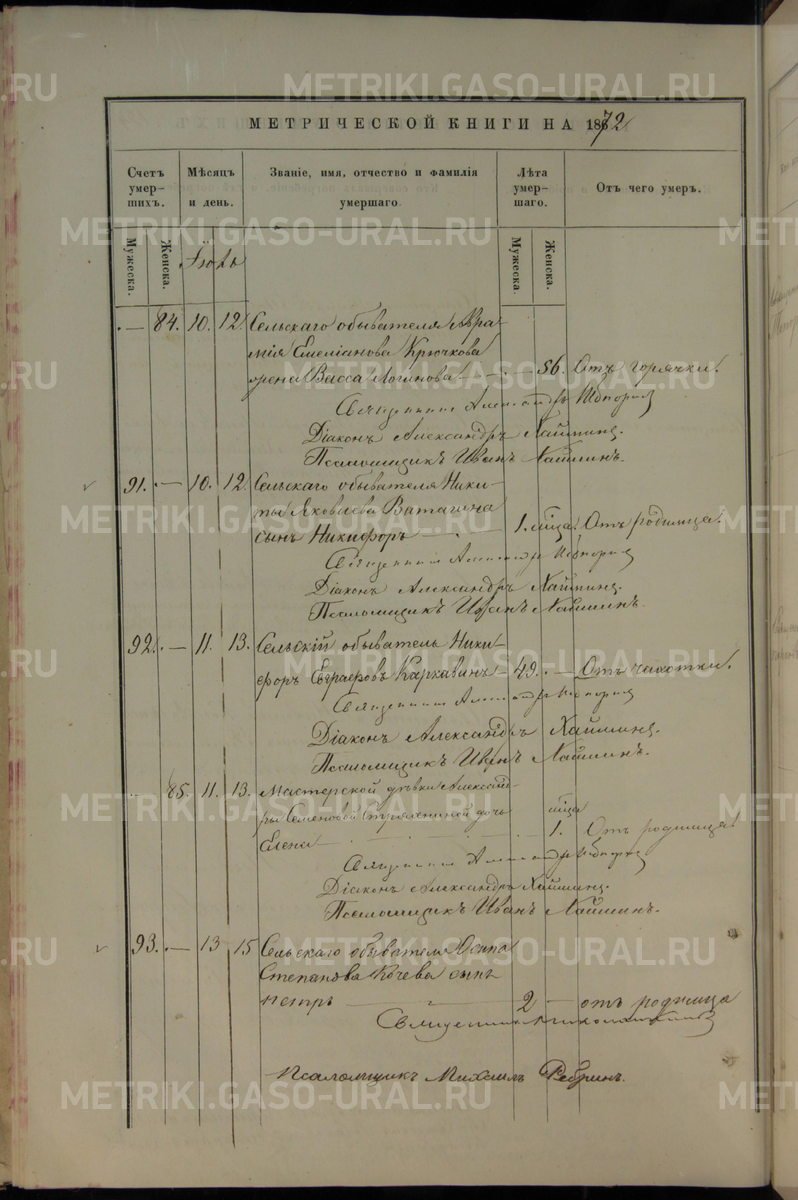 METRIKI.GASO-URAL.RU
МЕТРИЧЕСКОЙ КНИГИ НА 1872
Счетъ умер-шихъ.
Мѣсяцъ и день.
Званіе, имя, отчество и фамилія умершаго.
Лѣта умер-шаго.
Отъ чего умеръ.
Мужеска. Женска.
Мужеска. Женска.
Іюль
— 84. 10. 12. Сельскаго обывателя Авра-
мія Емеліанова Крючкова
жена Васса Логинова — 56. Отъ горячки.
Священникъ Александръ
Діаконъ Александръ
Псаломщикъ Иванъ
91. — 10. 12. Сельскаго обывателя Ники-
ты Яковлева Ватагина
сынъ Никифоръ — 1. мѣсца. Отъ родимца.
Священникъ Александръ
Діаконъ Александръ
Псаломщикъ Иванъ
92. — 11. 13. Сельскій обыватель Ники-
форъ Евграфовъ Каркавинъ 49. — Отъ чахотки.
Священникъ Александръ
Діаконъ Александръ
Псаломщикъ Иванъ
85. 11. 13. Мастерской дѣвки Александ-
ры Семеновой дочь мѣсца
Елена — 1. Отъ родимца.
Священникъ Александръ
Діаконъ Александръ
Псаломщикъ Иванъ
93. — 13 15 Сельскаго обывателя Осипа
Степанова Кочева сынъ
Петръ — 2 — отъ родимца
Священникъ
Псаломщикъ Михаилъ Ребринъ.